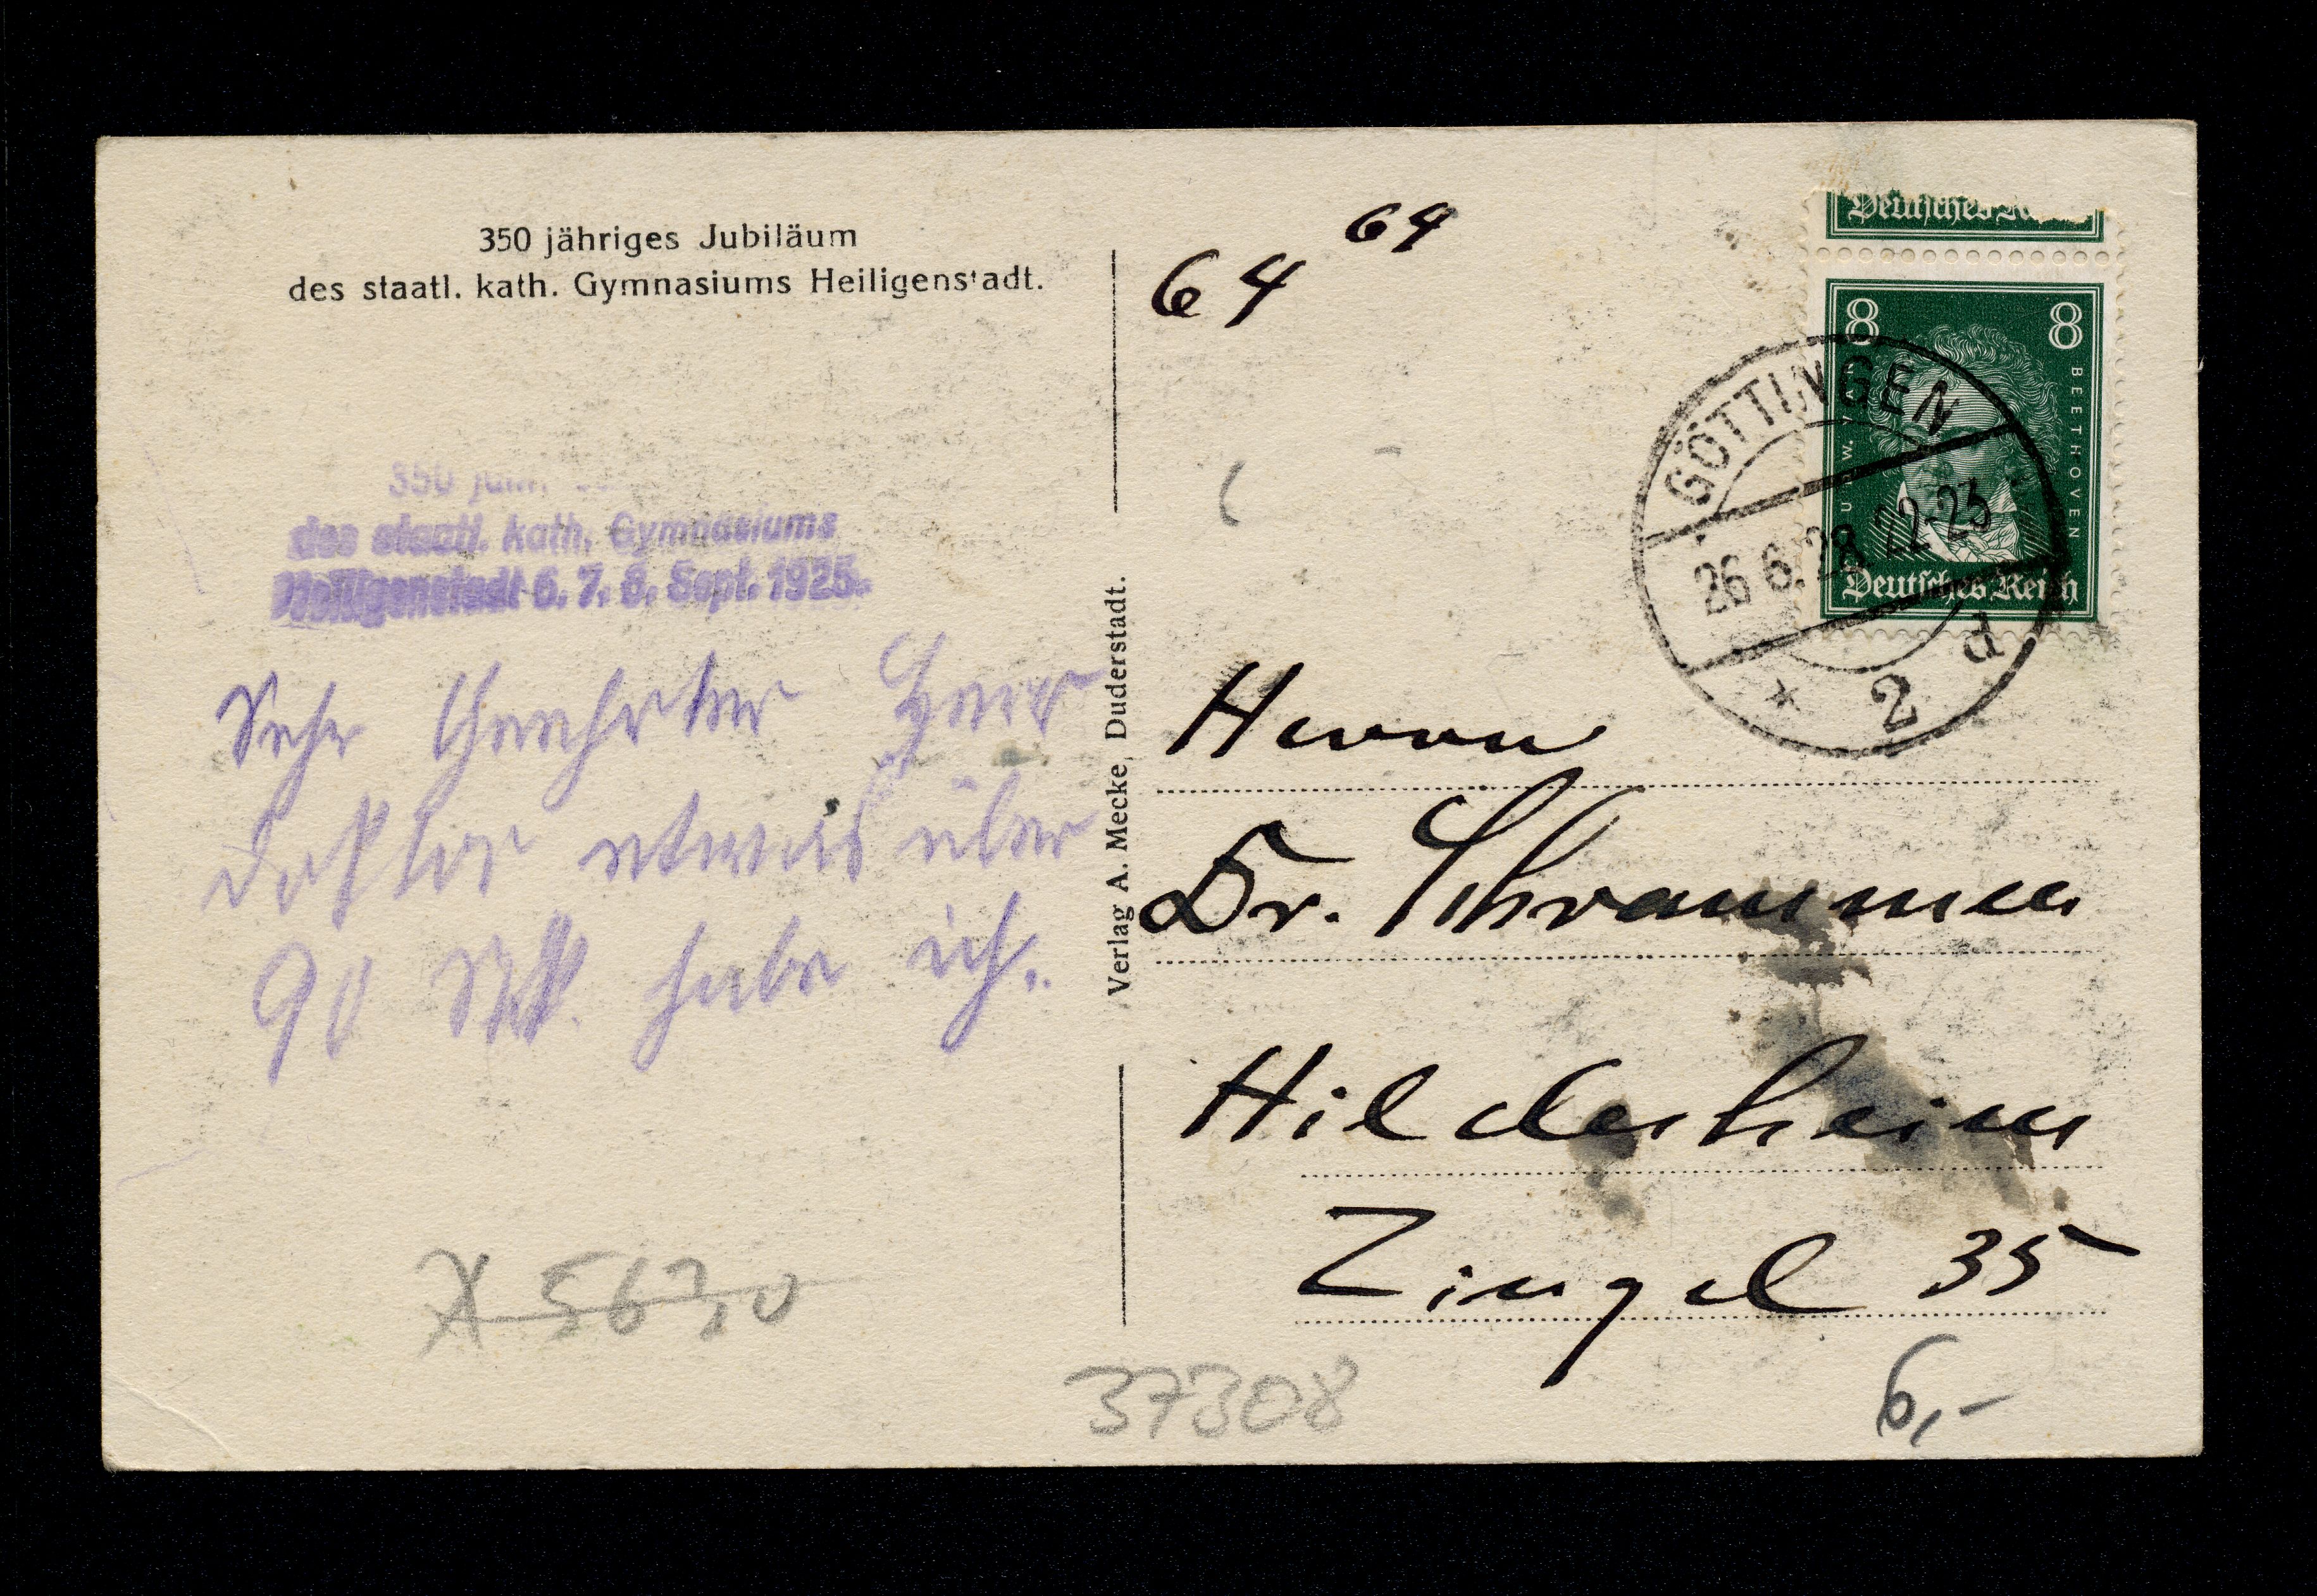 350 jähriges Jubiläum
des staatl. kath. Gymnasiums Heiligenstadt.
350 jähr.
des staatl. kath. Gymnasiums
Heiligenstadt 6. 7. 8. Sept. 1925.
Sehr Geehrter Herr
Doktor etwas über
90 Mk. habe ich.
X 567,0
Verlag A. Mecke, Duderstadt.
64 64
Deutsches Reich
8 8
L. V. BEETHOVEN
Deutsches Reich
GÖTTINGEN
26.6.28 22-23
* 2 d
Herrn
Dr. Schrammen
Hildesheim
Zingel 35
37308
6,-